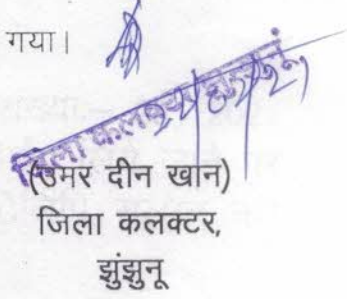 गया।
जिला कलक्टर, झुंझुनूं
(उमर दीन खान)
जिला कलक्टर,
झुंझुनू